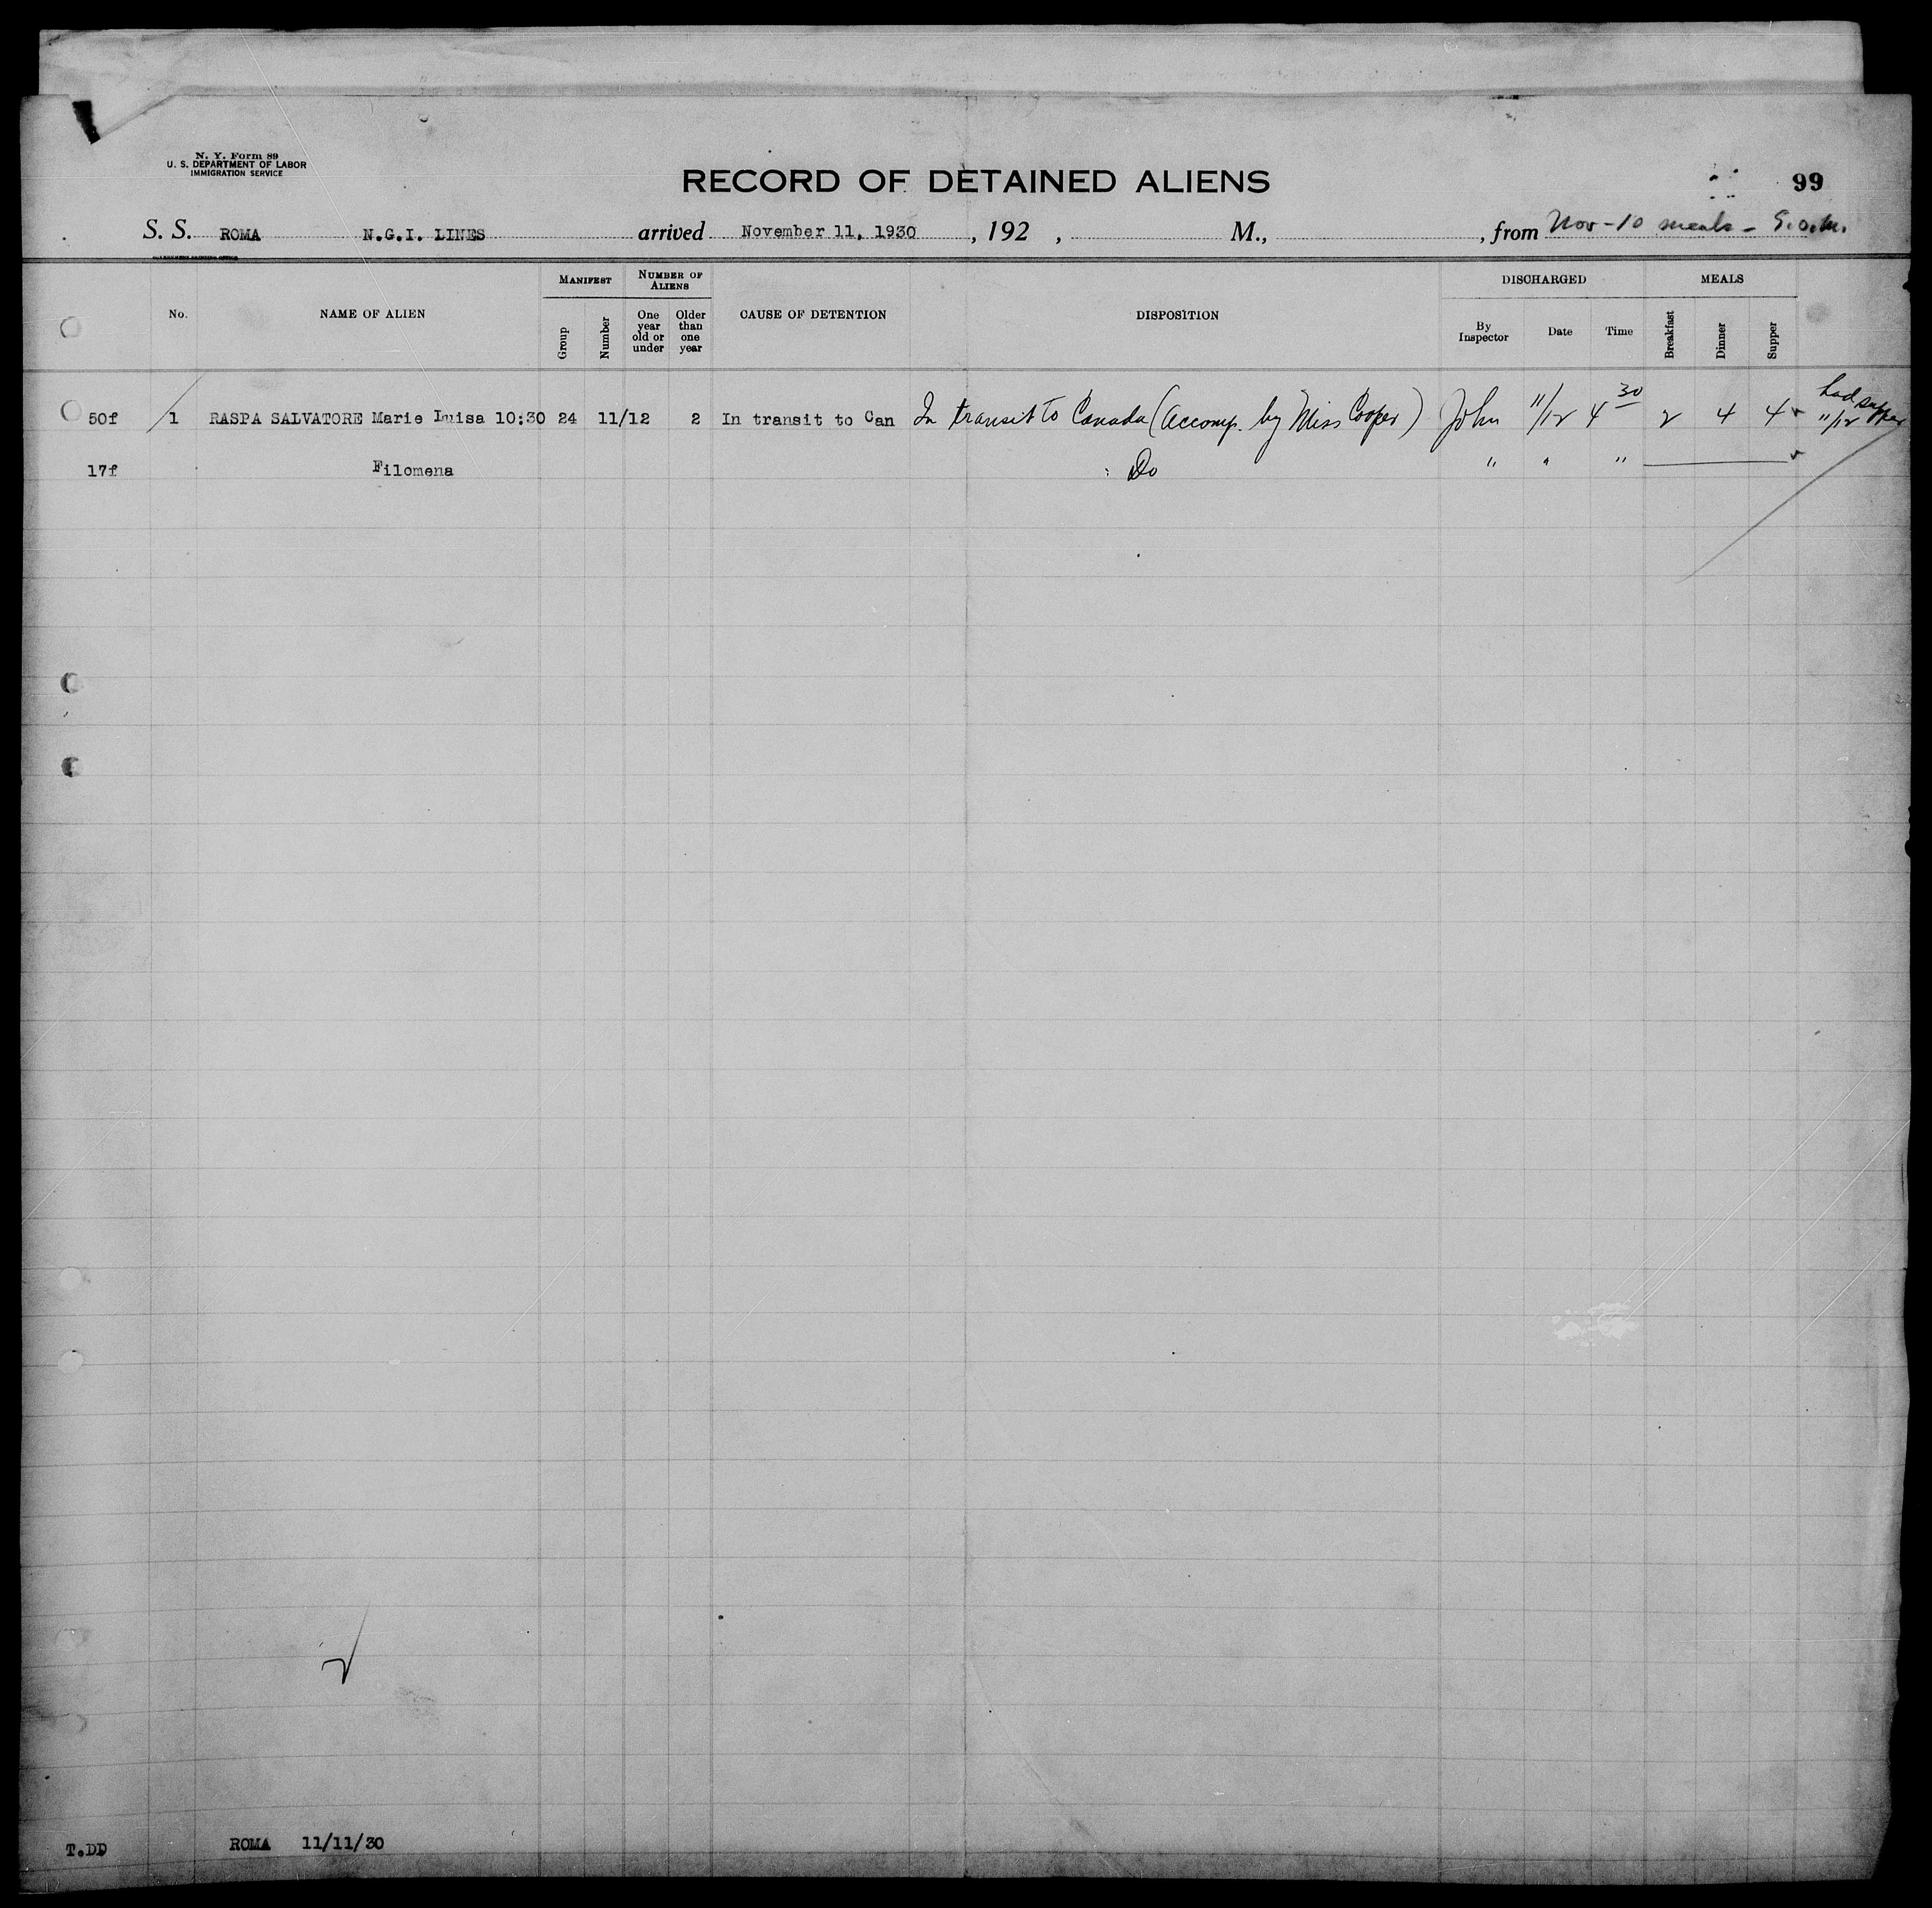 N. Y. Form 89
U. S. DEPARTMENT OF LABOR
IMMIGRATION SERVICE
RECORD OF DETAINED ALIENS
99
S. S. ROMA N.G.I. LINES arrived November 11, 1930, 192 , M., , from Nov-10 meals -
GOVERNMENT PRINTING OFFICE
No. NAME OF ALIEN MANIFEST Group Number NUMBER OF ALIENS One year old or under Older than one year CAUSE OF DETENTION DISPOSITION DISCHARGED By Inspector Date Time MEALS Breakfast Dinner Supper
50f 1 RASPA SALVATORE Marie Luisa 10:30 24 11/12 2 In transit to Can In transit to Canada (Accomp. by Miss Cooper) John 11/12 4 30 2 4 4 had supper 11/12
17f Filomena Do " " "
T.DD ROMA 11/11/30